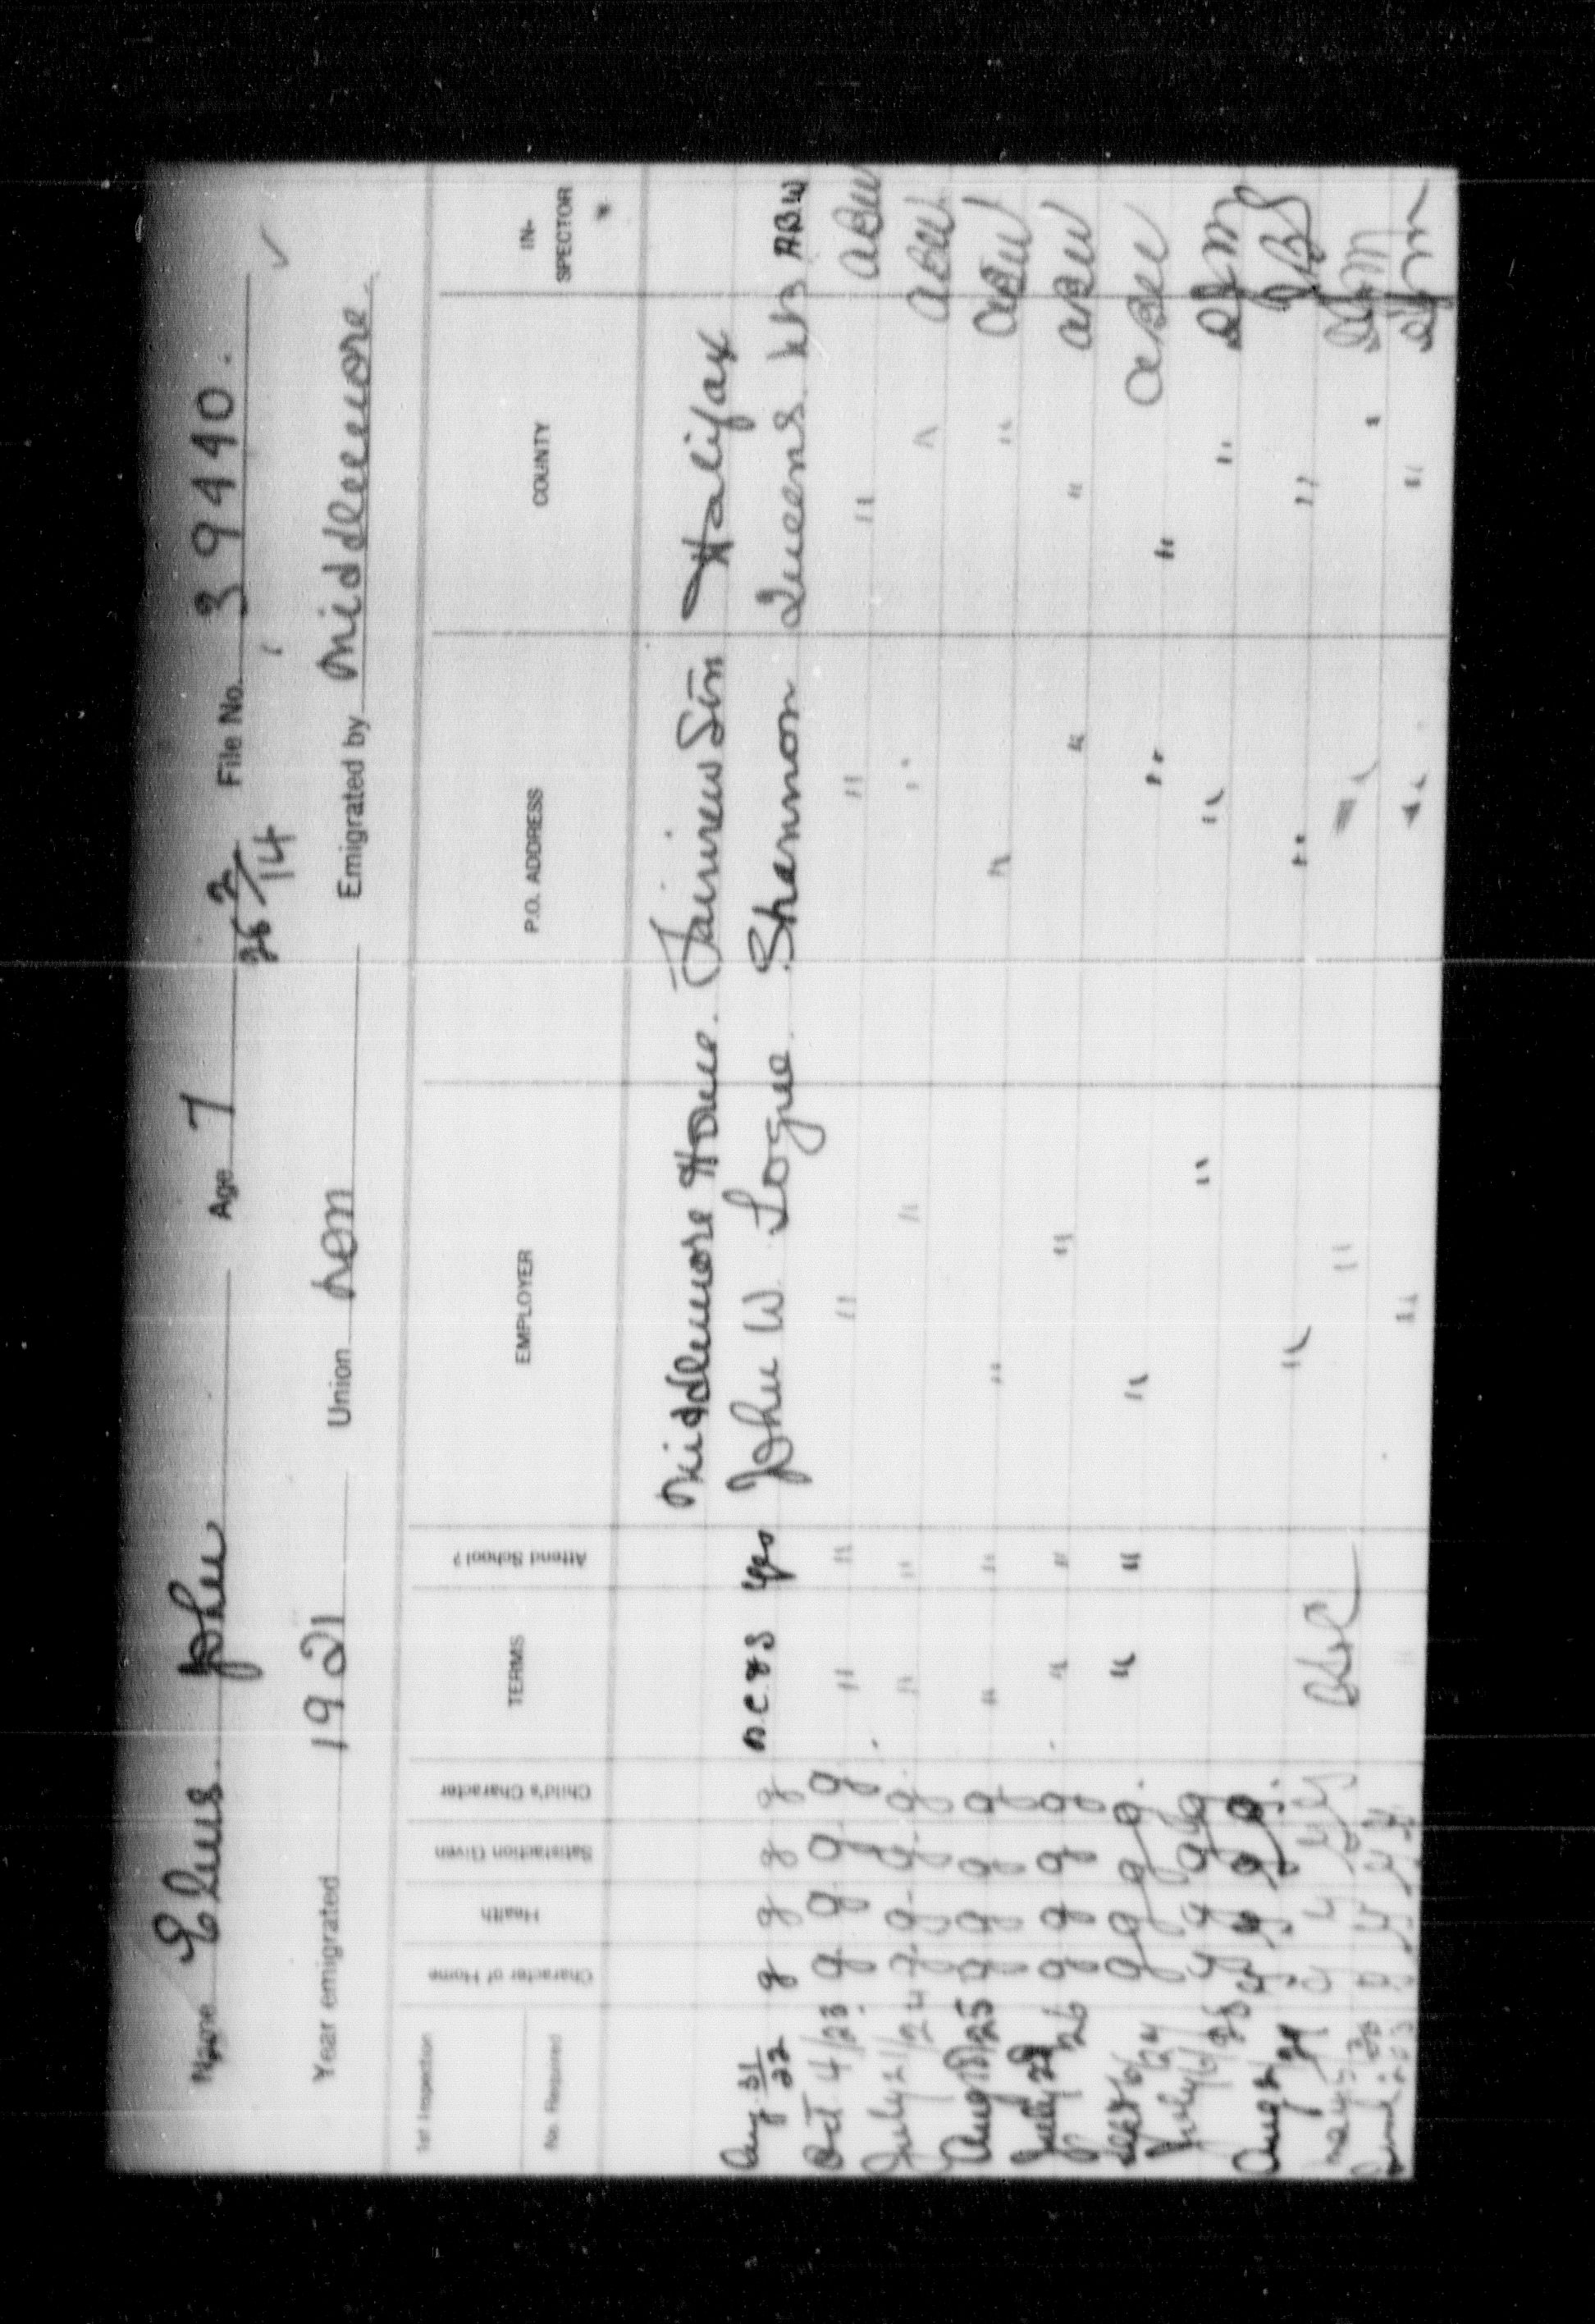 Name Elms John Age 7 File No. 39440.
26 2/14
Year emigrated 1921 Union non Emigrated by Middlemore
1st Inspection
No. Required
Character of Home Health Satisfaction Given Child's Character TERMS Attend School? EMPLOYER P.O. ADDRESS COUNTY IN-SPECTOR
Middlemore Home. Fairview Stn Halifax
Aug 31/22 g g g g B.C.&S Yes John W. Logue. Shannon Queens. NB ABW
Oct 4/23 g g g g " " " " " ABW
July 21/24 g g g g " " " " " ABW
Aug 18/25 g g g g " " " " " ABW
July 28/26 g g g g " " " " " ABW
g g g g " " " " " ABW
July 6/28 g g g g " " "
Aug 2/29 g g g g " " "
May 5/30 " " "
" " "